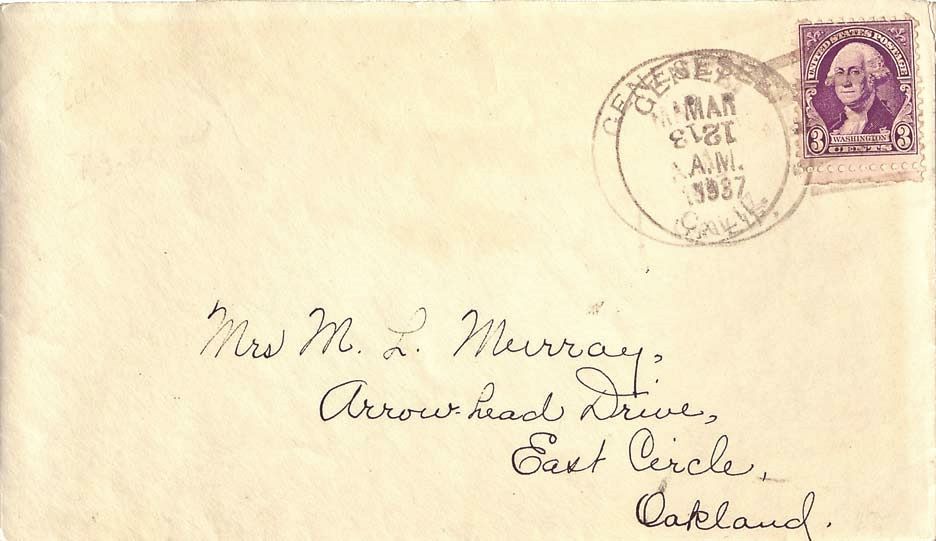 UNITED STATES POSTAGE
3 WASHINGTON 3
CENTS
GENESEE
MAR
A.M.
1937
CALIF.
Mrs M. L. Murray,
Arrow-head Drive,
East Circle,
Oakland.